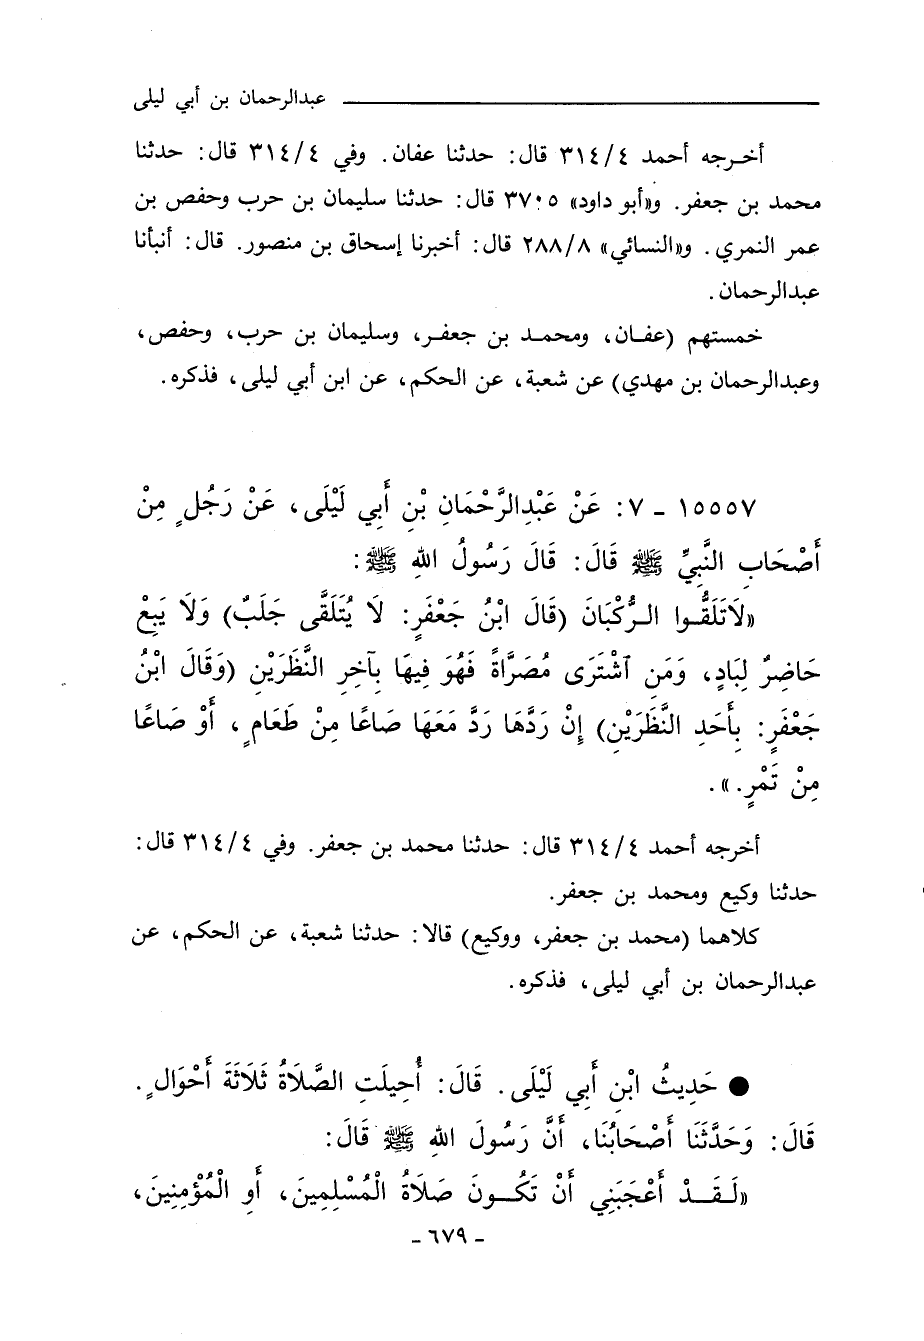 عبدالرحمان بن أبي ليلى
أخـرجه أحمد ٣١٤/٤ قال: حدثنا عفان. وفي ٣١٤/٤ قال: حدثنا
محمد بن جعفر. و«أبو داود» ٣٧٠٥ قال: حدثنا سليمان بن حرب وحفص بن
عمر النمري. و«النسائي» ٢٨٨/٨ قال: أخبرنا إسحاق بن منصور. قال: أنبأنا
عبدالرحمان.
خمستهم (عفـان، ومحمـد بن جعفـر، وسليمان بن حرب، وحفص،
وعبدالرحمان بن مهدي) عن شعبة، عن الحكم، عن ابن أبي ليلى، فذكره.
١٥٥٥٧ - ٧: عَنْ عَبْدِالرَّحْمَانِ بْنِ أَبِي لَيْلَى، عَنْ رَجُلٍ مِنْ
أَصْحَابِ النَّبِيِّ ﷺ قَالَ: قَالَ رَسُولُ اللهِ ﷺ:
«لَاتَلَقُّـوا الـرُّكْبَانَ (قَالَ ابْنُ جَعْفَرٍ: لَا يُتَلَقَّى جَلَبٌ) وَلَا يَبِعْ
حَاضِرٌ لِبَادٍ، وَمَنِ ٱشْتَرَى مُصَرَّاةً فَهُوَ فِيهَا بِآخِرِ النَّظَرَيْنِ (وَقَالَ ابْنُ
جَعْفَرٍ: بِأَحَدِ النَّظَرَيْنِ) إِنْ رَدَّهَا رَدَّ مَعَهَا صَاعًا مِنْ طَعَامٍ، أَوْ صَاعًا
مِنْ تَمْرٍ.».
أخرجه أحمد ٣١٤/٤ قال: حدثنا محمد بن جعفر. وفي ٣١٤/٤ قال:
حدثنا وكيع ومحمد بن جعفر.
كلاهما (محمد بن جعفر، ووكيع) قالا: حدثنا شعبة، عن الحكم، عن
عبدالرحمان بن أبي ليلى، فذكره.
● حَدِيثُ ابْنِ أَبِي لَيْلَى. قَالَ: أُحِيلَتِ الصَّلَاةُ ثَلَاثَةَ أَحْوَالٍ.
قَالَ: وَحَدَّثَنَا أَصْحَابُنَا، أَنَّ رَسُولَ اللهِ ﷺ قَالَ:
«لَـقَـدْ أَعْجَبَنِي أَنْ تَكُـونَ صَلَاةُ الْمُسْلِمِينَ، أَوِ الْمُؤْمِنِينَ،
- ٦٧٩ -